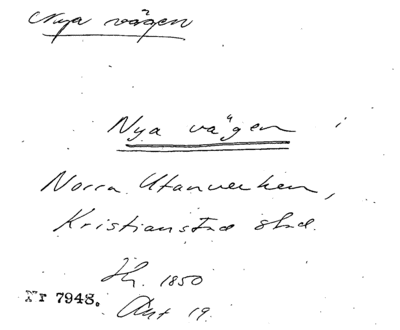 Nya vägen
Nya vägen i
Norra Utanverken,
Kristianstad stad.
1850
Nr 7948.
Akt 19.